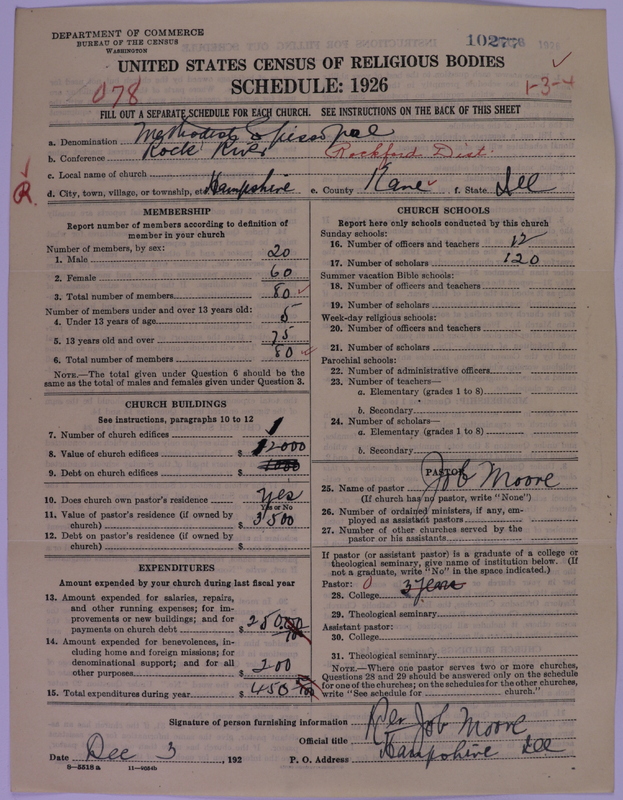 DEPARTMENT OF COMMERCE
BUREAU OF THE CENSUS
WASHINGTON
UNITED STATES CENSUS OF RELIGIOUS BODIES
078
SCHEDULE: 1926
1-3-4
FILL OUT A SEPARATE SCHEDULE FOR EACH CHURCH. SEE INSTRUCTIONS ON THE BACK OF THIS SHEET
a. Denomination Methodist Episcopal
b. Conference Rock River Rockford Dist.
c. Local name of church
R.
d. City, town, village, or township, etc. Hampshire e. County Kane f. State Ill
MEMBERSHIP
Report number of members according to definition of member in your church
Number of members, by sex:
1. Male 20
2. Female 60
3. Total number of members 80
Number of members under and over 13 years old:
4. Under 13 years of age 5
5. 13 years old and over 75
6. Total number of members 80
NOTE.—The total given under Question 6 should be
same as the total of males and females given under Question 3.
CHURCH BUILDINGS
See instructions, paragraphs 10 to 12
7. Number of church edifices 1
8. Value of church edifices $ 12000
9. Debt on church edifices $
10. Does church own pastor's residence yes
Yes or No
11. Value of pastor's residence (if owned by
church) $ 3500
12. Debt on pastor's residence (if owned by
church) $
EXPENDITURES
Amount expended by your church during last fiscal year
13. Amount expended for salaries, repairs,
and other running expenses; for im-
provements or new buildings; and for
payments on church debt $
14. Amount expended for benevolences, in-
cluding home and foreign missions; for
denominational support; and for all
other purposes $ 200
15. Total expenditures during year $
CHURCH SCHOOLS
Report here only schools conducted by this church
Sunday schools:
16. Number of officers and teachers 12
17. Number of scholars 120
Summer vacation Bible schools:
18. Number of officers and teachers
19. Number of scholars
Week-day religious schools:
20. Number of officers and teachers
21. Number of scholars
Parochial schools:
22. Number of administrative officers
23. Number of teachers—
a. Elementary (grades 1 to 8)
b. Secondary
24. Number of scholars—
a. Elementary (grades 1 to 8)
b. Secondary
PASTOR
25. Name of pastor Job Moore
(If church has no pastor, write "None")
26. Number of ordained ministers, if any, em-
ployed as assistant pastors
27. Number of other churches served by the
pastor or his assistants
If pastor (or assistant pastor) is a graduate of a college or
theological seminary, give name of institution below. (If
not a graduate, write "No" in the space indicated.)
Pastor: 0
28. College 3 years
29. Theological seminary
Assistant pastor:
30. College
31. Theological seminary
NOTE.—Where one pastor serves two or more churches,
Questions 28 and 29 should be answered only on the schedule
for one of the churches; on the schedules for the other churches,
write "See schedule for church."
Signature of person furnishing information Rev Job Moore
Official title
Date Dec 3, 192 P. O. Address Hampshire Ill
8-5518 a 11-9054b